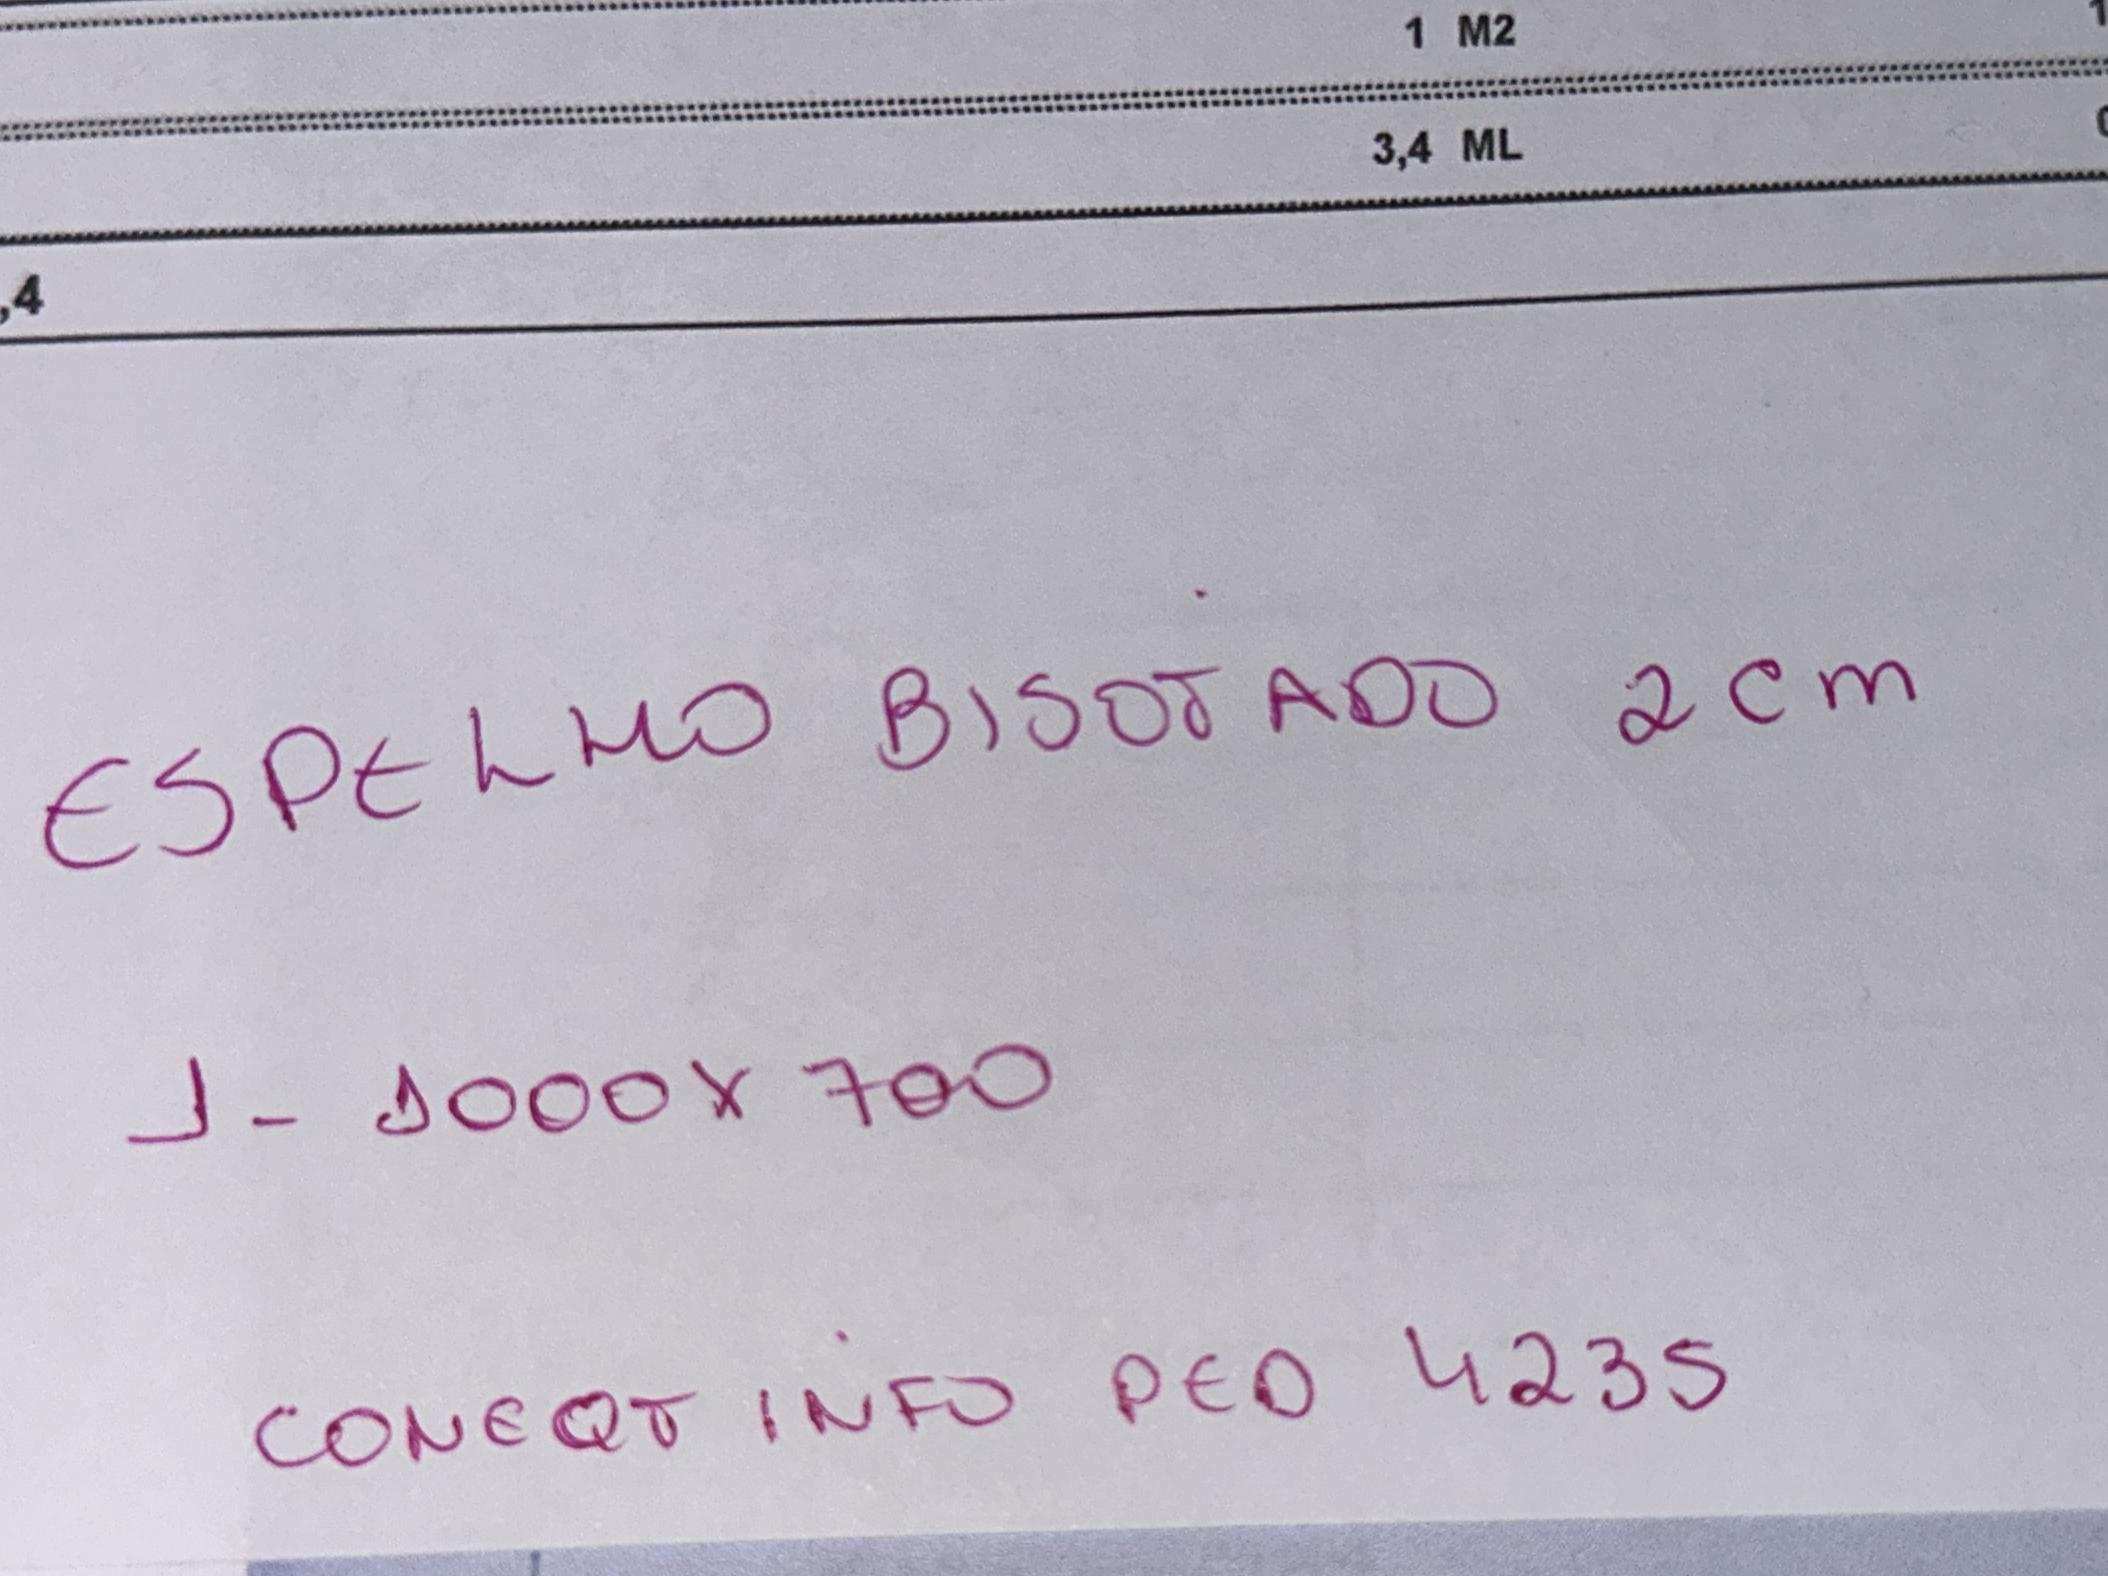 1 M2 1
3,4 ML
,4
ESPELHO BISOTADO 2cm
1- 1000x700
CONEQT INFO PED 4235